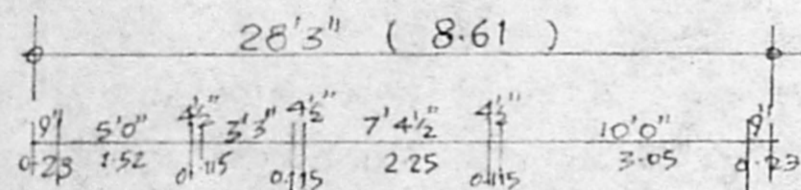 28'3" ( 8.61 )
9" 5'0" 4½" 3'3" 4½" 7'4½" 4½" 10'0" 9"
0.23 1.52 0.115 0.115 2.25 0.115 3.05 0.23